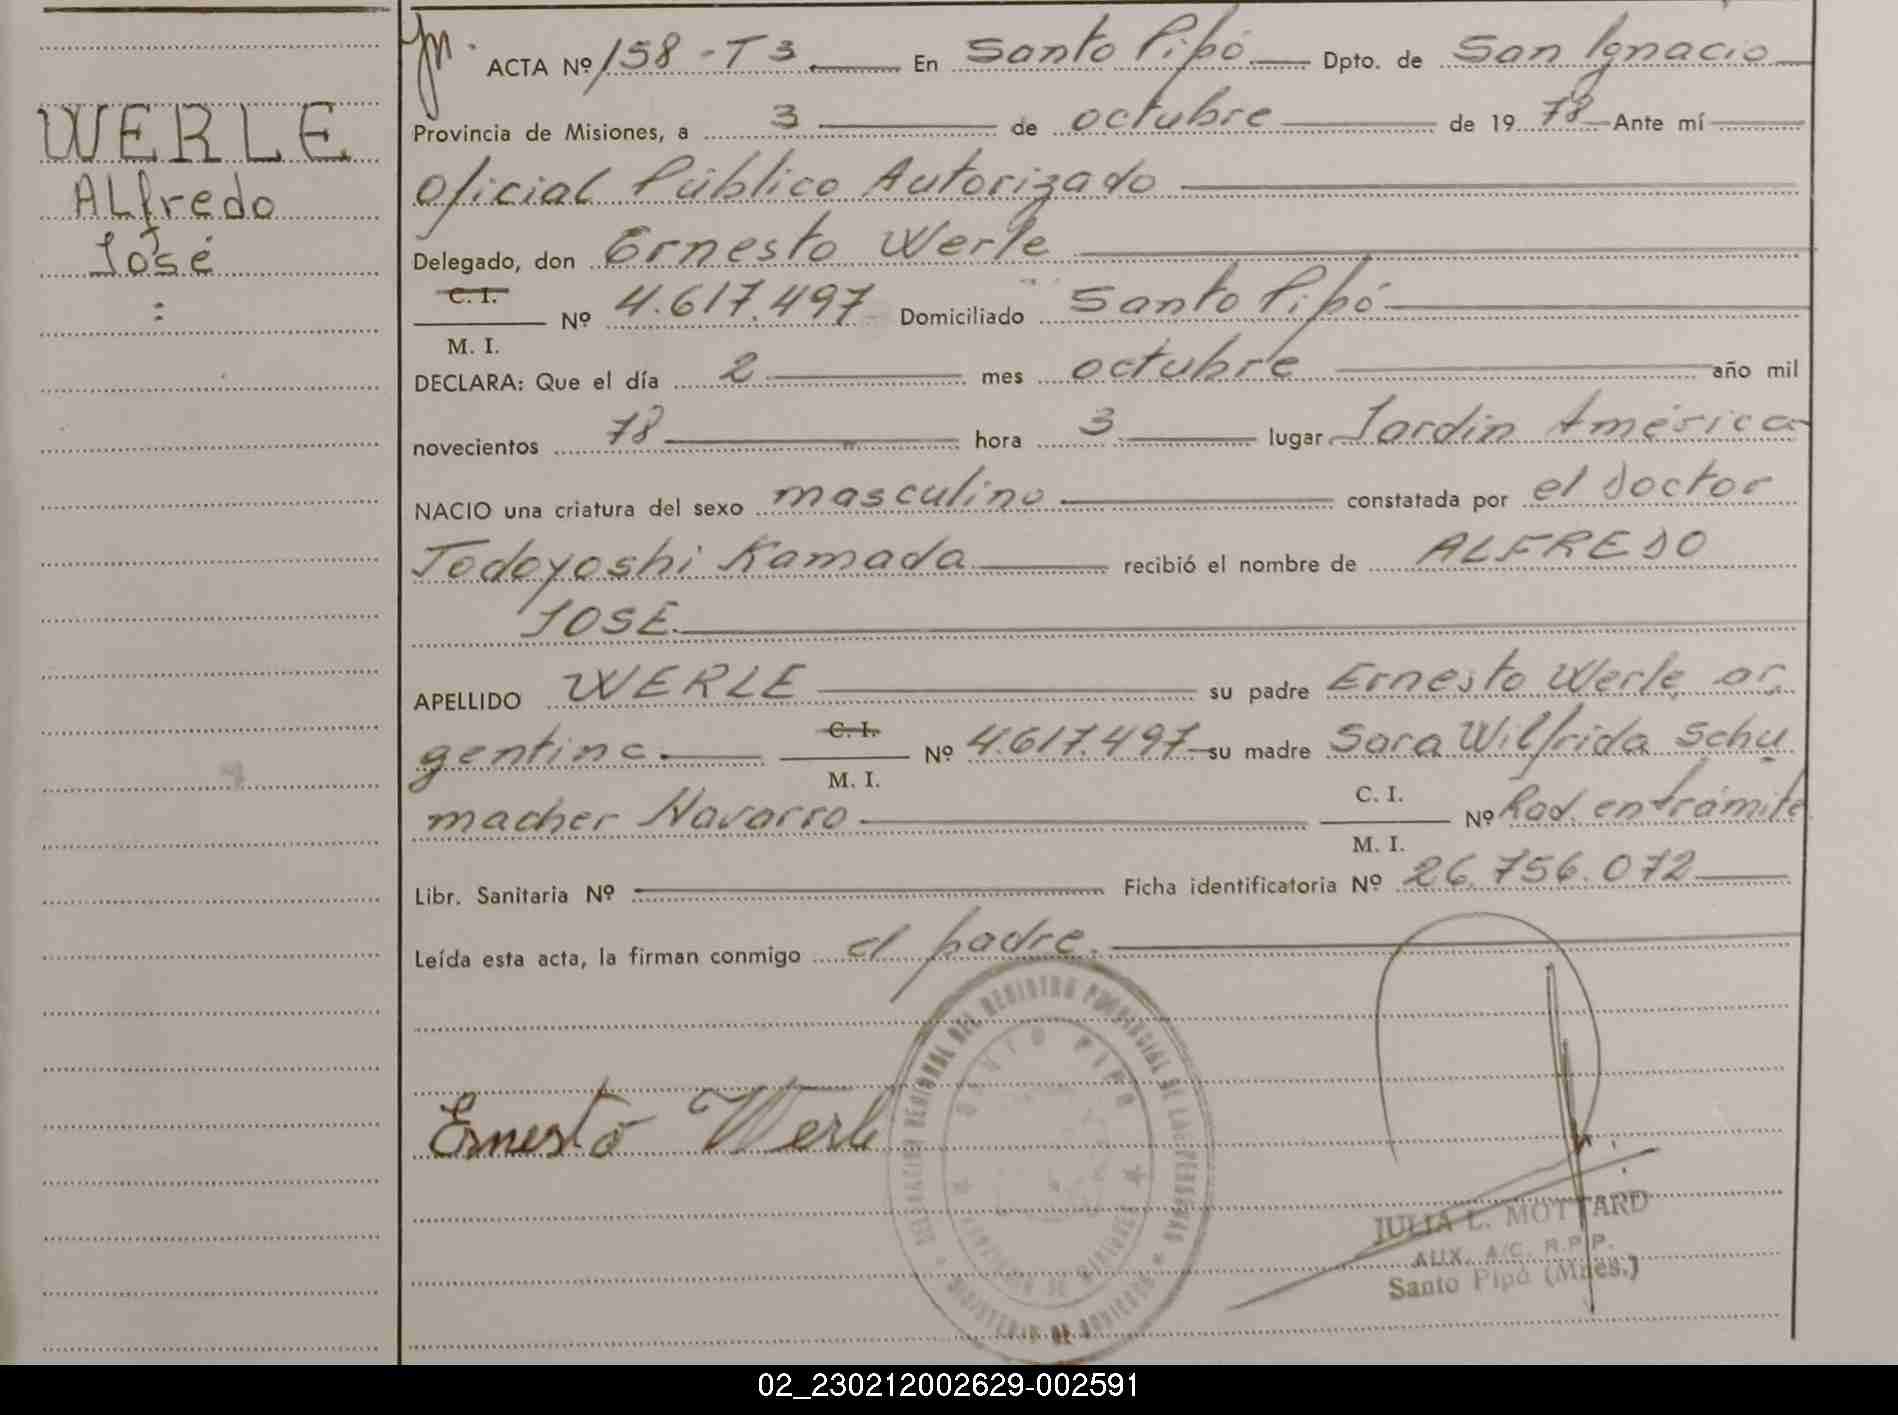 WERLE
ALfredo
José
:
ACTA Nº 158 - T 3 En Santo Pipó Dpto. de San Ignacio
Provincia de Misiones, a 3 de octubre de 19 78 Ante mí
Oficial Público Autorizado
Delegado, don Ernesto Werle
C. I.
Nº 4.617.497 Domiciliado Santo Pipó
M. I.
DECLARA: Que el día 2 mes octubre año mil
novecientos 78 hora 3 lugar Jardin América
NACIO una criatura del sexo masculino constatada por el doctor
Todoyoshi Kamada recibió el nombre de ALFREDO
JOSÉ
APELLIDO WERLE su padre Ernesto Werle, ar
gentino C. I. Nº 4.617.497 su madre Sara Wilfrida Schu
M. I.
macher Navarro C. I. Nº Rad. en trámite
M. I.
Libr. Sanitaria Nº Ficha identificatoria Nº 26.756.072
Leída esta acta, la firman conmigo el padre.
Ernesto Werle
DELEGACION REGIONAL DEL REGISTRO PROVINCIAL DE LAS PERSONAS
SANTO PIPO
PROVINCIA DE MISIONES
MINISTERIO DE GOBIERNO
JULIA L. MOTTARD
AUX. A/C. R.P.P.
Santo Pipó (Mnes.)
02_230212002629-002591